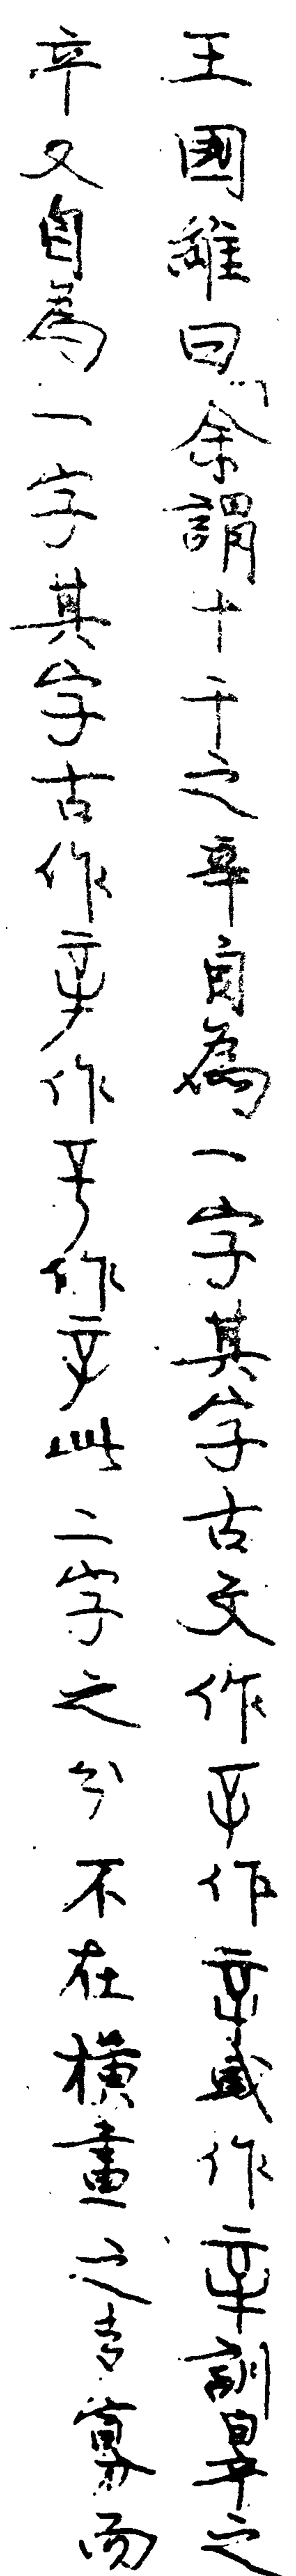 王國維曰「余謂十干之辛自為一字其字古文作作或作訓辠之
辛又自為一字其字古作作作此二字之分不在橫畫之多寡而